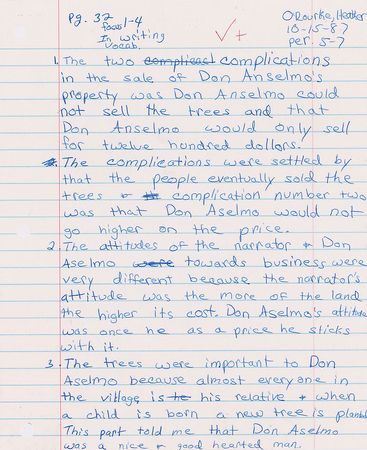 Pg. 32
focus 1-4
In writing
Vocab.
✓+
O'Rourke, Heather
10-15-87
per: 5-7
1. The two complicast complications
in the sale of Don Anselmo's
property was Don Anselmo could
not sell the trees and that
Don Anselmo would only sell
for twelve hundred dollars.
The complications were settled by
that the people eventually sold the
trees + complication number two
was that Don Aselmo would not
go higher on the price.
2. The attitudes of the narrator + Don
Aselmo were towards business were
very different because the narrator's
attitude was the more of the land
the higher its cost. Don Aselmo's attitude
was once he as a price he sticks
with it.
3. The trees were important to Don
Aselmo because almost everyone in
the village is he his relative + when
a child is born a new tree is planted
This part told me that Don Aselmo
was a nice + good hearted man.